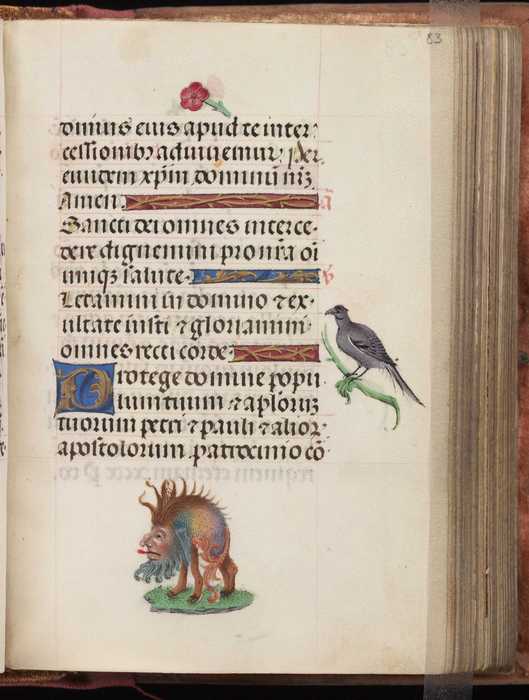 83
dinis eius apud te inter
cessionibz adiuuemur. Per
eundem xpm dominū nr̄z
Amen.
Sancti dei omnes interce-
dere dignemini pro nr̄a oī
umqz salute.
Letamini in domino ⁊ ex-
ultate iusti ⁊ gloriamini
omnes recti corde.
Protege domine popu
lum tuum ⁊ aplorūz
tuorum petri ⁊ pauli ⁊ alior̄
apostolorum patrocinio cō